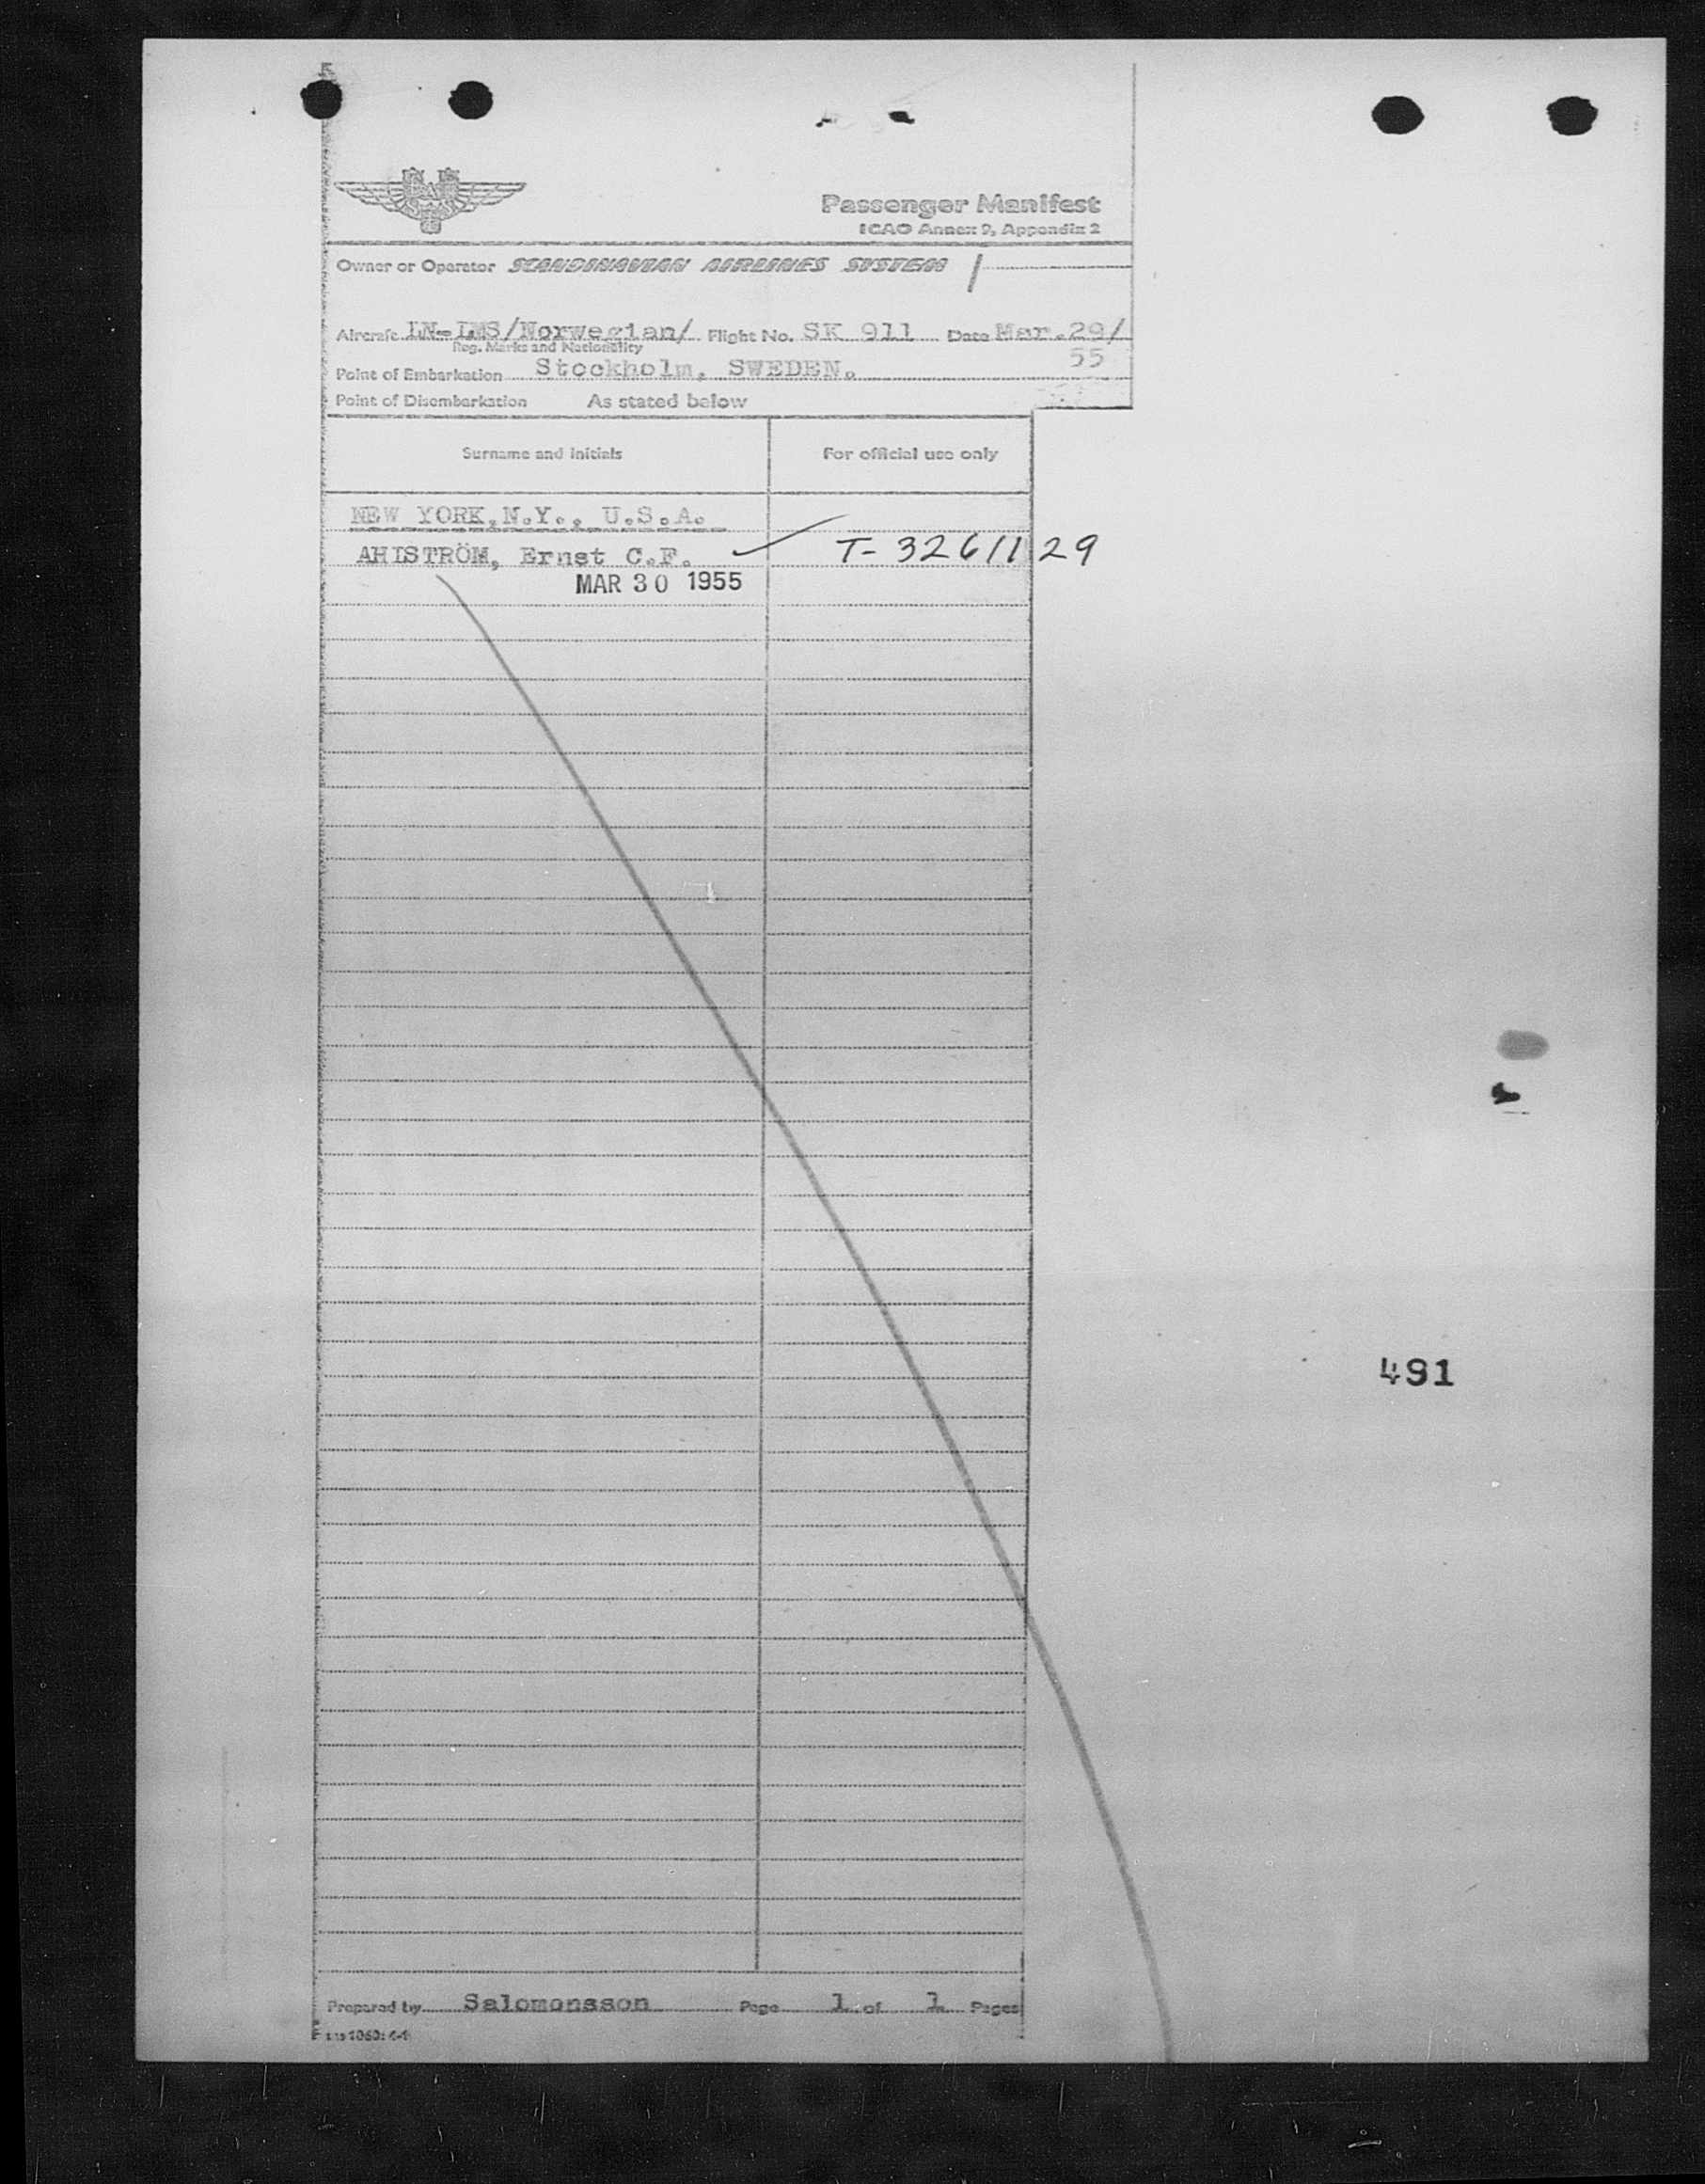 Passenger Manifest
ICAO Annex 9, Appendix 2
Owner or Operator SCANDINAVIAN AIRLINES SYSTEM /
Aircraft LN-LMS/Norwegian/ Flight No. SK 911 Date Mar.29/
Reg. Marks and Nationality
55
Point of Embarkation Stockholm, SWEDEN.
Point of Disembarkation As stated below
Surname and Initials For official use only
NEW YORK,N.Y., U.S.A.
AHLSTRÖM, Ernst C.F. ✓ T-3261129
MAR 30 1955
491
Prepared by Salomonsson Page 1 of 1 Pages